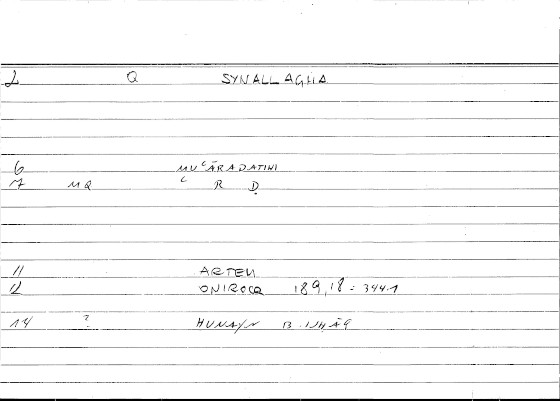 2 Q SYNALLAGMA
6 MUʿĀRADATINI
7 MQ ʿ R Ḍ
11 ARTEM
12 ONIROCR 189,18 = 344.1
14 ? HUNAYN B. ISHĀQ